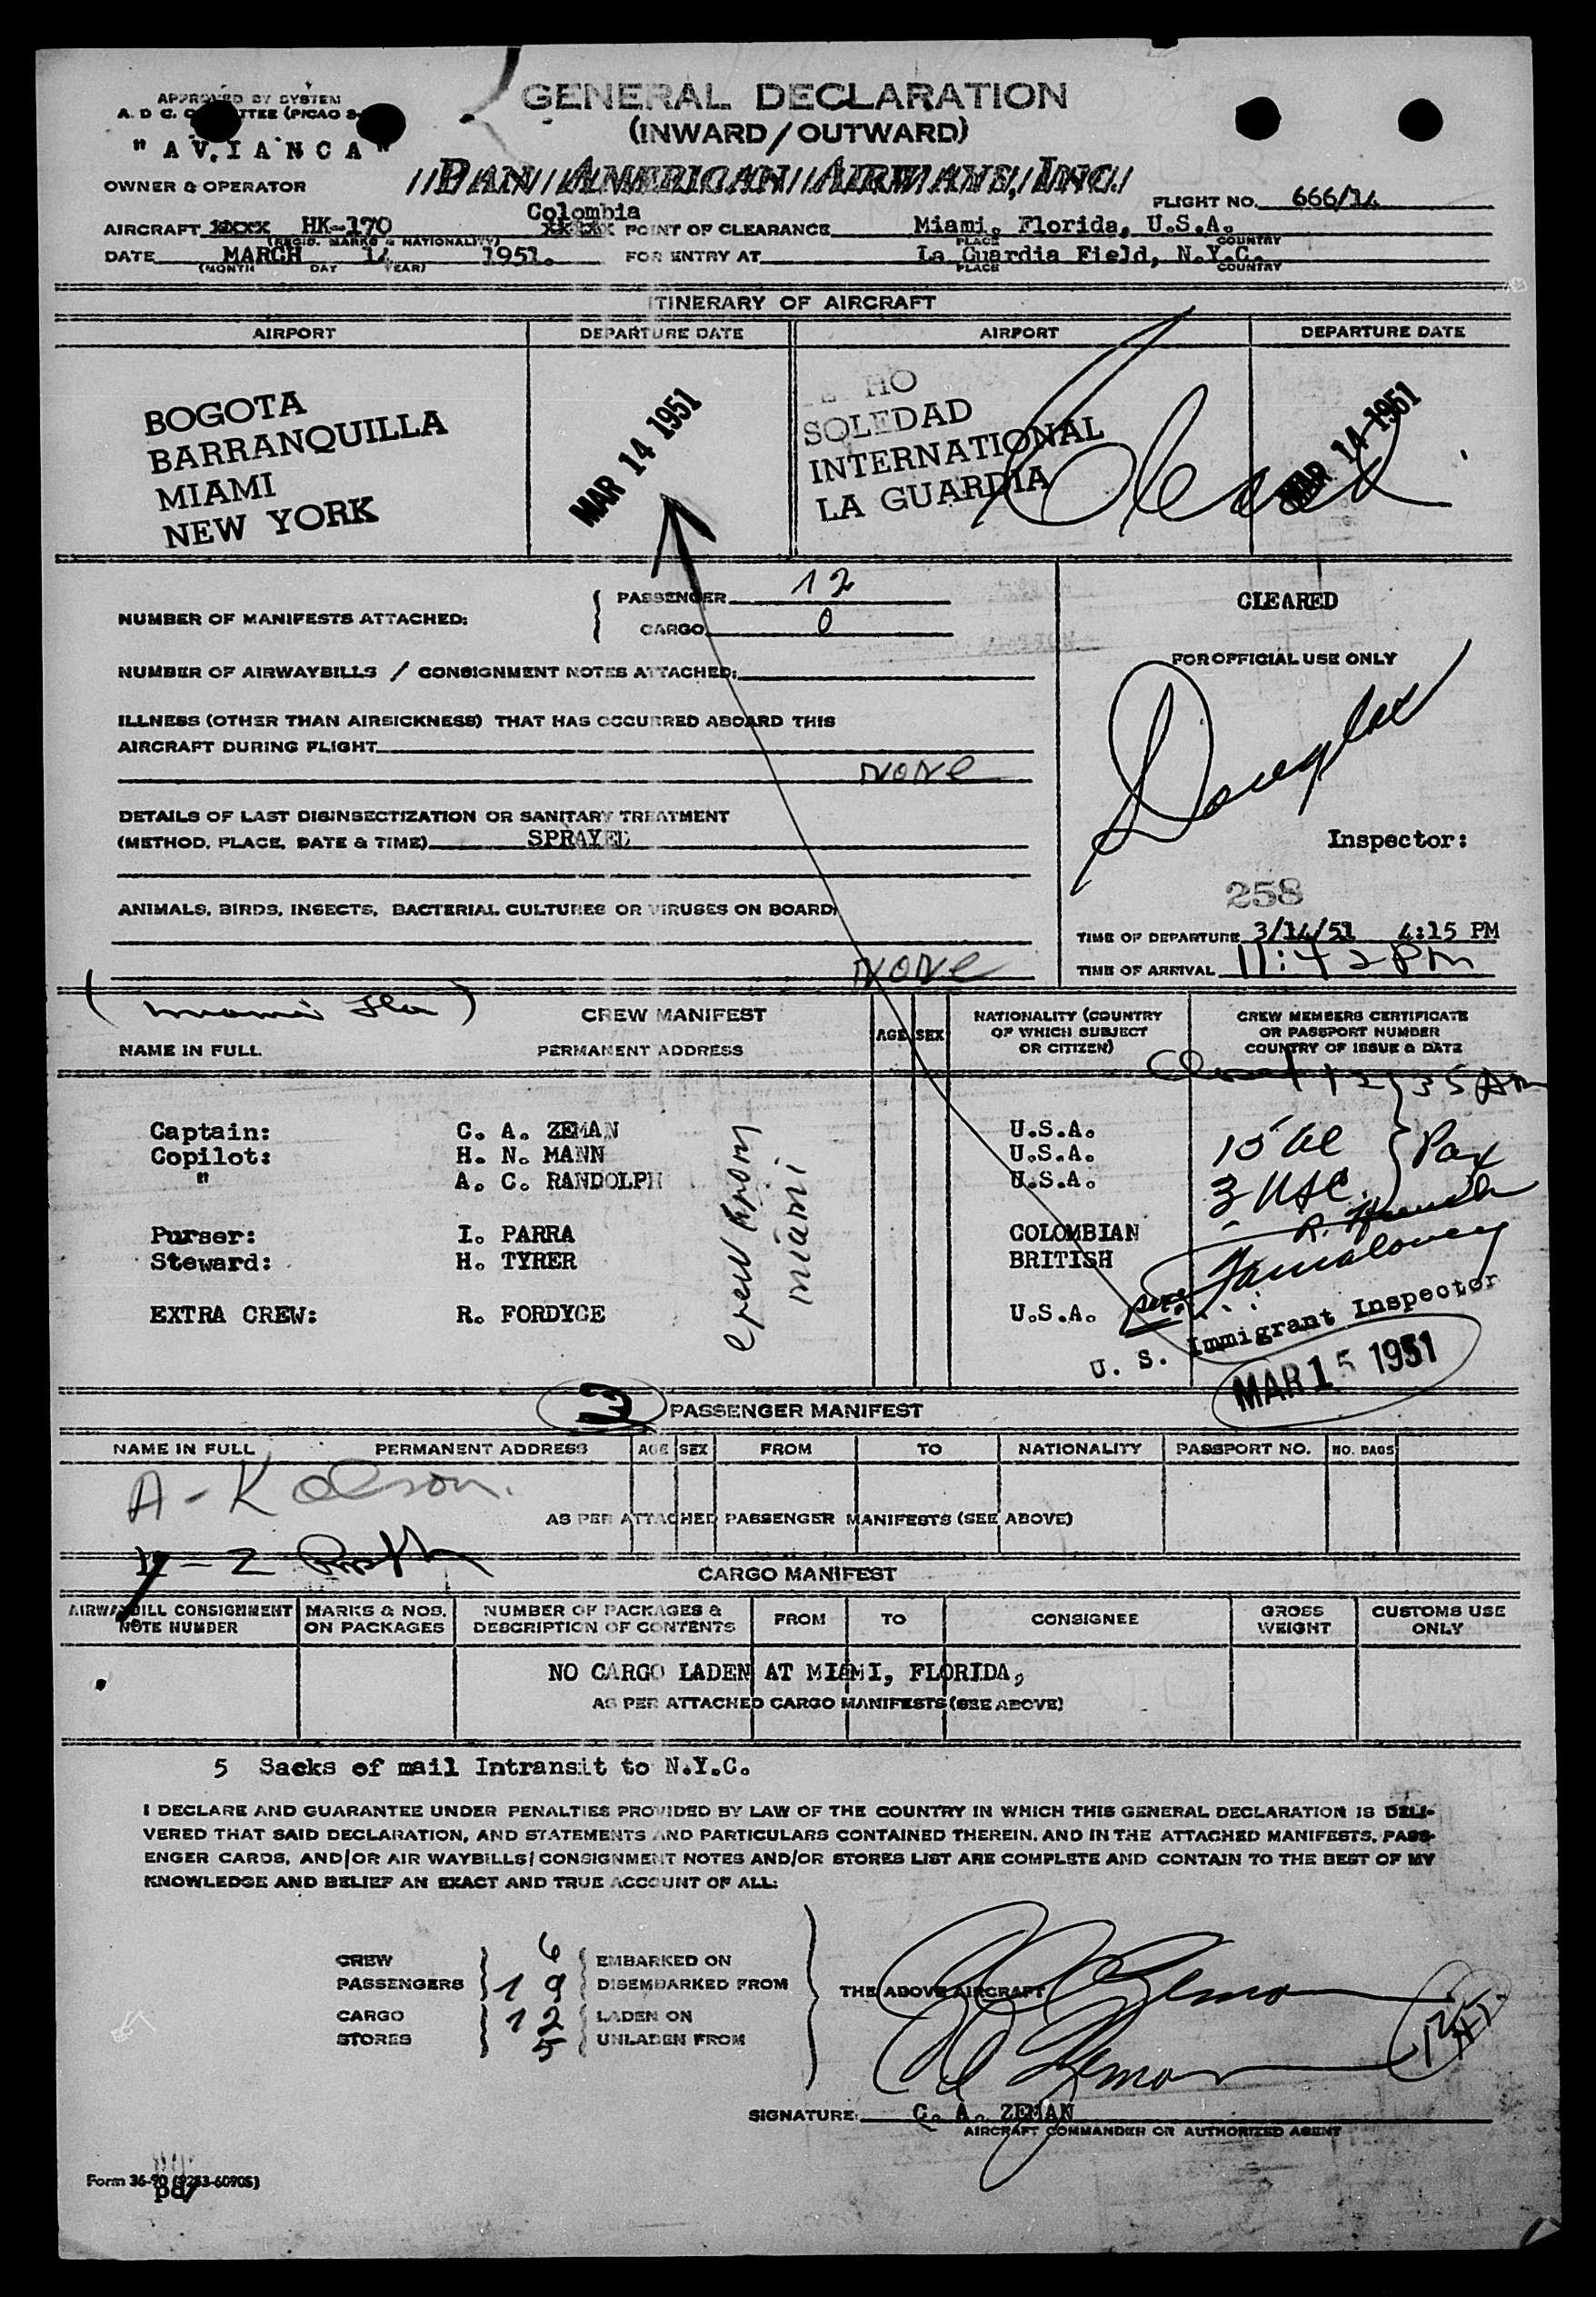 APPROVED BY SYSTEM
A. D C. (PICAO
GENERAL DECLARATION
(INWARD/OUTWARD)
" A V I A N C A "
PAN AMERICAN AIRWAYS, INC.
OWNER & OPERATOR
FLIGHT NO. 666/14
Colombia
AIRCRAFT xxxx HK-170 xxxxx POINT OF CLEARANCE Miami, Florida, U.S.A.
(REGIS. MARKS & NATIONALITY) PLACE COUNTRY
DATE MARCH 14 1951. FOR ENTRY AT La Guardia Field, N.Y.C.
(MONTH DAY YEAR) PLACE COUNTRY
ITINERARY OF AIRCRAFT
AIRPORT DEPARTURE DATE AIRPORT DEPARTURE DATE
BOGOTA
BARRANQUILLA
MIAMI
NEW YORK
MAR 14 1951
HO
SOLEDAD
INTERNATIONAL
LA GUARDIA
MAR 14 1951
NUMBER OF MANIFESTS ATTACHED: PASSENGER 12
CARGO 0
CLEARED
FOR OFFICIAL USE ONLY
NUMBER OF AIRWAYBILLS / CONSIGNMENT NOTES ATTACHED:
ILLNESS (OTHER THAN AIRSICKNESS) THAT HAS OCCURRED ABOARD THIS
AIRCRAFT DURING FLIGHT
NONE
Douglas
DETAILS OF LAST DISINSECTIZATION OR SANITARY TREATMENT
(METHOD, PLACE, DATE & TIME) SPRAYED
Inspector:
258
ANIMALS, BIRDS, INSECTS, BACTERIAL CULTURES OR VIRUSES ON BOARD:
NONE
TIME OF DEPARTURE 3/14/51 4:15 PM
TIME OF ARRIVAL 11:42 PM
(Miami Fla)
CREW MANIFEST
NAME IN FULL PERMANENT ADDRESS AGE SEX NATIONALITY (COUNTRY
OF WHICH SUBJECT
OR CITIZEN)
CREW MEMBERS CERTIFICATE
OR PASSPORT NUMBER
COUNTRY OF ISSUE & DATE
12:35 AM
Captain: C. A. ZEMAN U.S.A.
Copilot: H. N. MANN U.S.A.
" A. C. RANDOLPH U.S.A.
Purser: I. PARRA COLOMBIAN
Steward: H. TYRER BRITISH
EXTRA CREW: R. FORDYCE U.S.A.
crew from
miami
15 al
3 USC
Pax
U. S. Immigrant Inspector
MAR 15 1951
3
PASSENGER MANIFEST
NAME IN FULL PERMANENT ADDRESS AGE SEX FROM TO NATIONALITY PASSPORT NO. NO. BAGS
AS PER ATTACHED PASSENGER MANIFESTS (SEE ABOVE)
CARGO MANIFEST
AIRWAYBILL CONSIGNMENT
NOTE NUMBER
MARKS & NOS.
ON PACKAGES
NUMBER OF PACKAGES &
DESCRIPTION OF CONTENTS
FROM TO CONSIGNEE
GROSS
WEIGHT
CUSTOMS USE
ONLY
NO CARGO LADEN AT MIAMI, FLORIDA,
AS PER ATTACHED CARGO MANIFESTS (SEE ABOVE)
5 Sacks of mail Intransit to N.Y.C.
I DECLARE AND GUARANTEE UNDER PENALTIES PROVIDED BY LAW OF THE COUNTRY IN WHICH THIS GENERAL DECLARATION IS DELI-
VERED THAT SAID DECLARATION, AND STATEMENTS AND PARTICULARS CONTAINED THEREIN, AND IN THE ATTACHED MANIFESTS, PASS-
ENGER CARDS, AND/OR AIR WAYBILLS/CONSIGNMENT NOTES AND/OR STORES LIST ARE COMPLETE AND CONTAIN TO THE BEST OF MY
KNOWLEDGE AND BELIEF AN EXACT AND TRUE ACCOUNT OF ALL:
CREW 6 EMBARKED ON
PASSENGERS 19 DISEMBARKED FROM
CARGO 12 LADEN ON
STORES 5 UNLADEN FROM
THE ABOVE AIRCRAFT
SIGNATURE: C. A. ZEMAN
AIRCRAFT COMMANDER OR AUTHORIZED AGENT
Form 36-90 (9253-6090S)